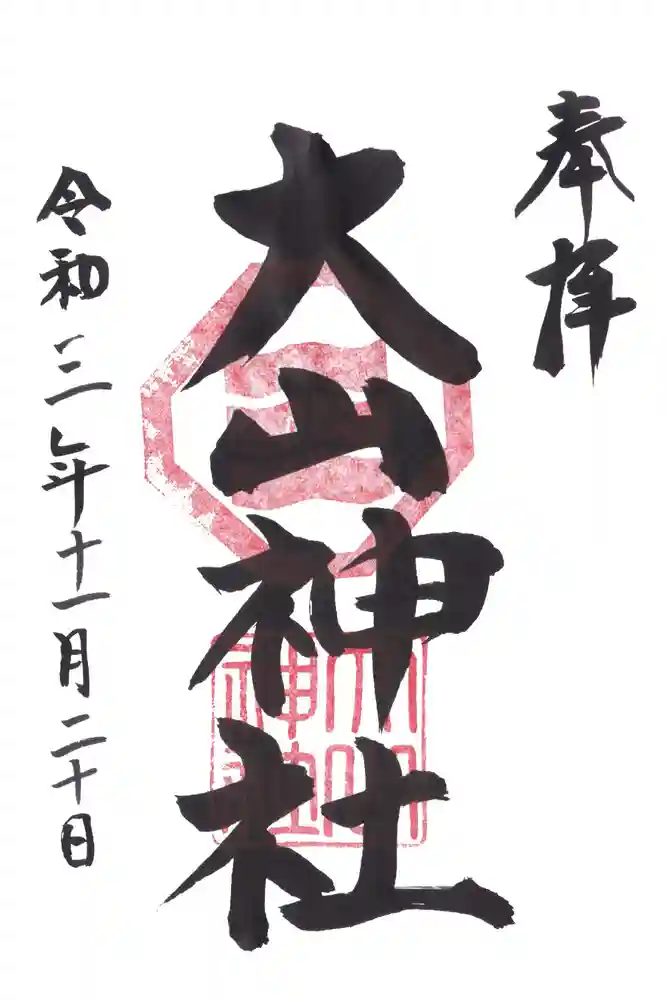 奉拝
大山神社
大山神社
令和三年十一月二十日